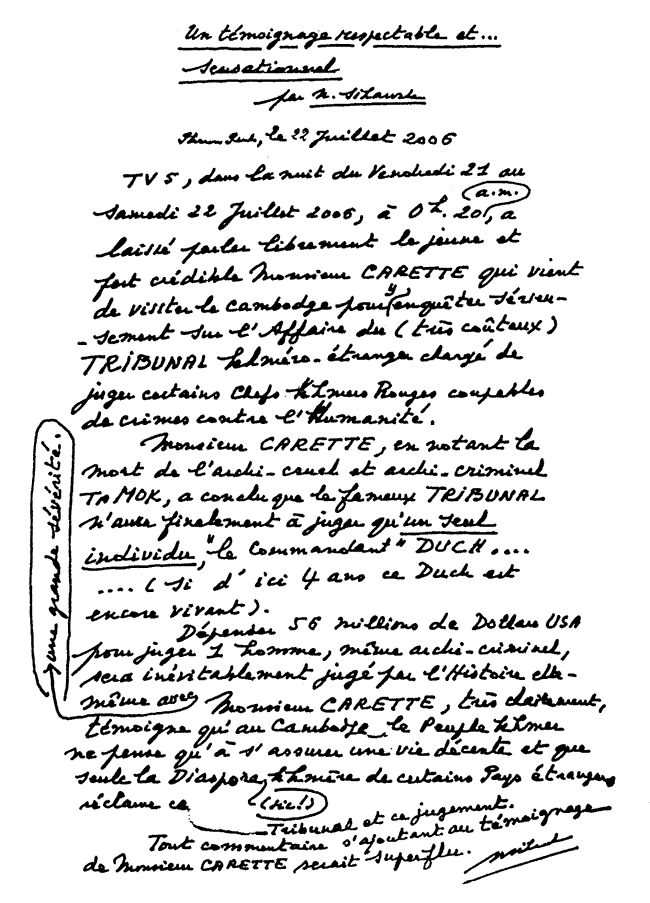 Un témoignage respectable et...
sensationnel
par N. Sihanouk
le 22 Juillet 2006
TV5, dans la nuit du Vendredi 21 au
a.m.
Samedi 22 Juillet 2006, à 0h.20, a
laissé parler librement le jeune et
fort crédible Monsieur CARETTE qui vient
de visiter le Cambodge pour y enquêter sérieu-
-sement sur l'Affaire du (très coûteux)
TRIBUNAL khméro-étranger chargé de
juger certains Chefs Khmers Rouges coupables
de crimes contre l'Humanité.
Monsieur CARETTE, en notant la
mort de l'archi-cruel et archi-criminel
TA MOK, a conclu que le fameux TRIBUNAL
n'aura finalement à juger qu'un seul
individu, "le Commandant" DUCH....
.... (si d'ici 4 ans ce Duch est
encore vivant).
Dépenser 56 millions de Dollars USA
pour juger 1 homme, même archi-criminel,
sera inévitablement jugé par l'Histoire elle-
même avec
une grande sévérité.
Monsieur CARETTE, très clairement,
témoigne qu'au Cambodge le Peuple khmer
ne pense qu'à s'assurer une vie décente et que
seule la Diaspora khmère de certains Pays étrangers
réclame ce (sic!)
Tribunal et ce jugement.
Tout commentaire s'ajoutant au témoignage
de Monsieur CARETTE serait superflu.